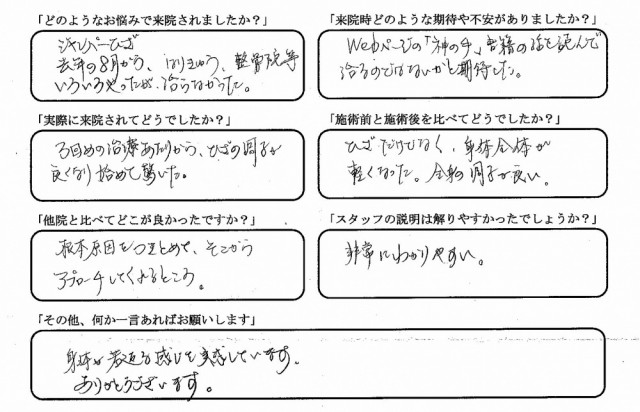 「どのようなお悩みで来院されましたか？」
ジャンパーひざ
去年の8月から、はりきゅう、整骨院等
いろいろやったが、治らなかった。
「来院時どのような期待や不安がありましたか？」
Webページの「神の手」書籍の話を読んで
治るのではないかと期待した。
「実際に来院されてどうでしたか？」
3回めの治療あたりから、ひざの調子が
良くなり始めて驚いた。
「施術前と施術後を比べてどうでしたか？」
ひざだけでなく、身体全体が
軽くなった。全身の調子が良い。
「他院と比べてどこが良かったですか？」
根本原因をつきとめて、そこから
アプローチしてくれるところ。
「スタッフの説明は解りやすかったでしょうか？」
非常にわかりやすい。
「その他、何か一言あればお願いします」
身体が若返る感じを実感しています。
ありがとうございます。